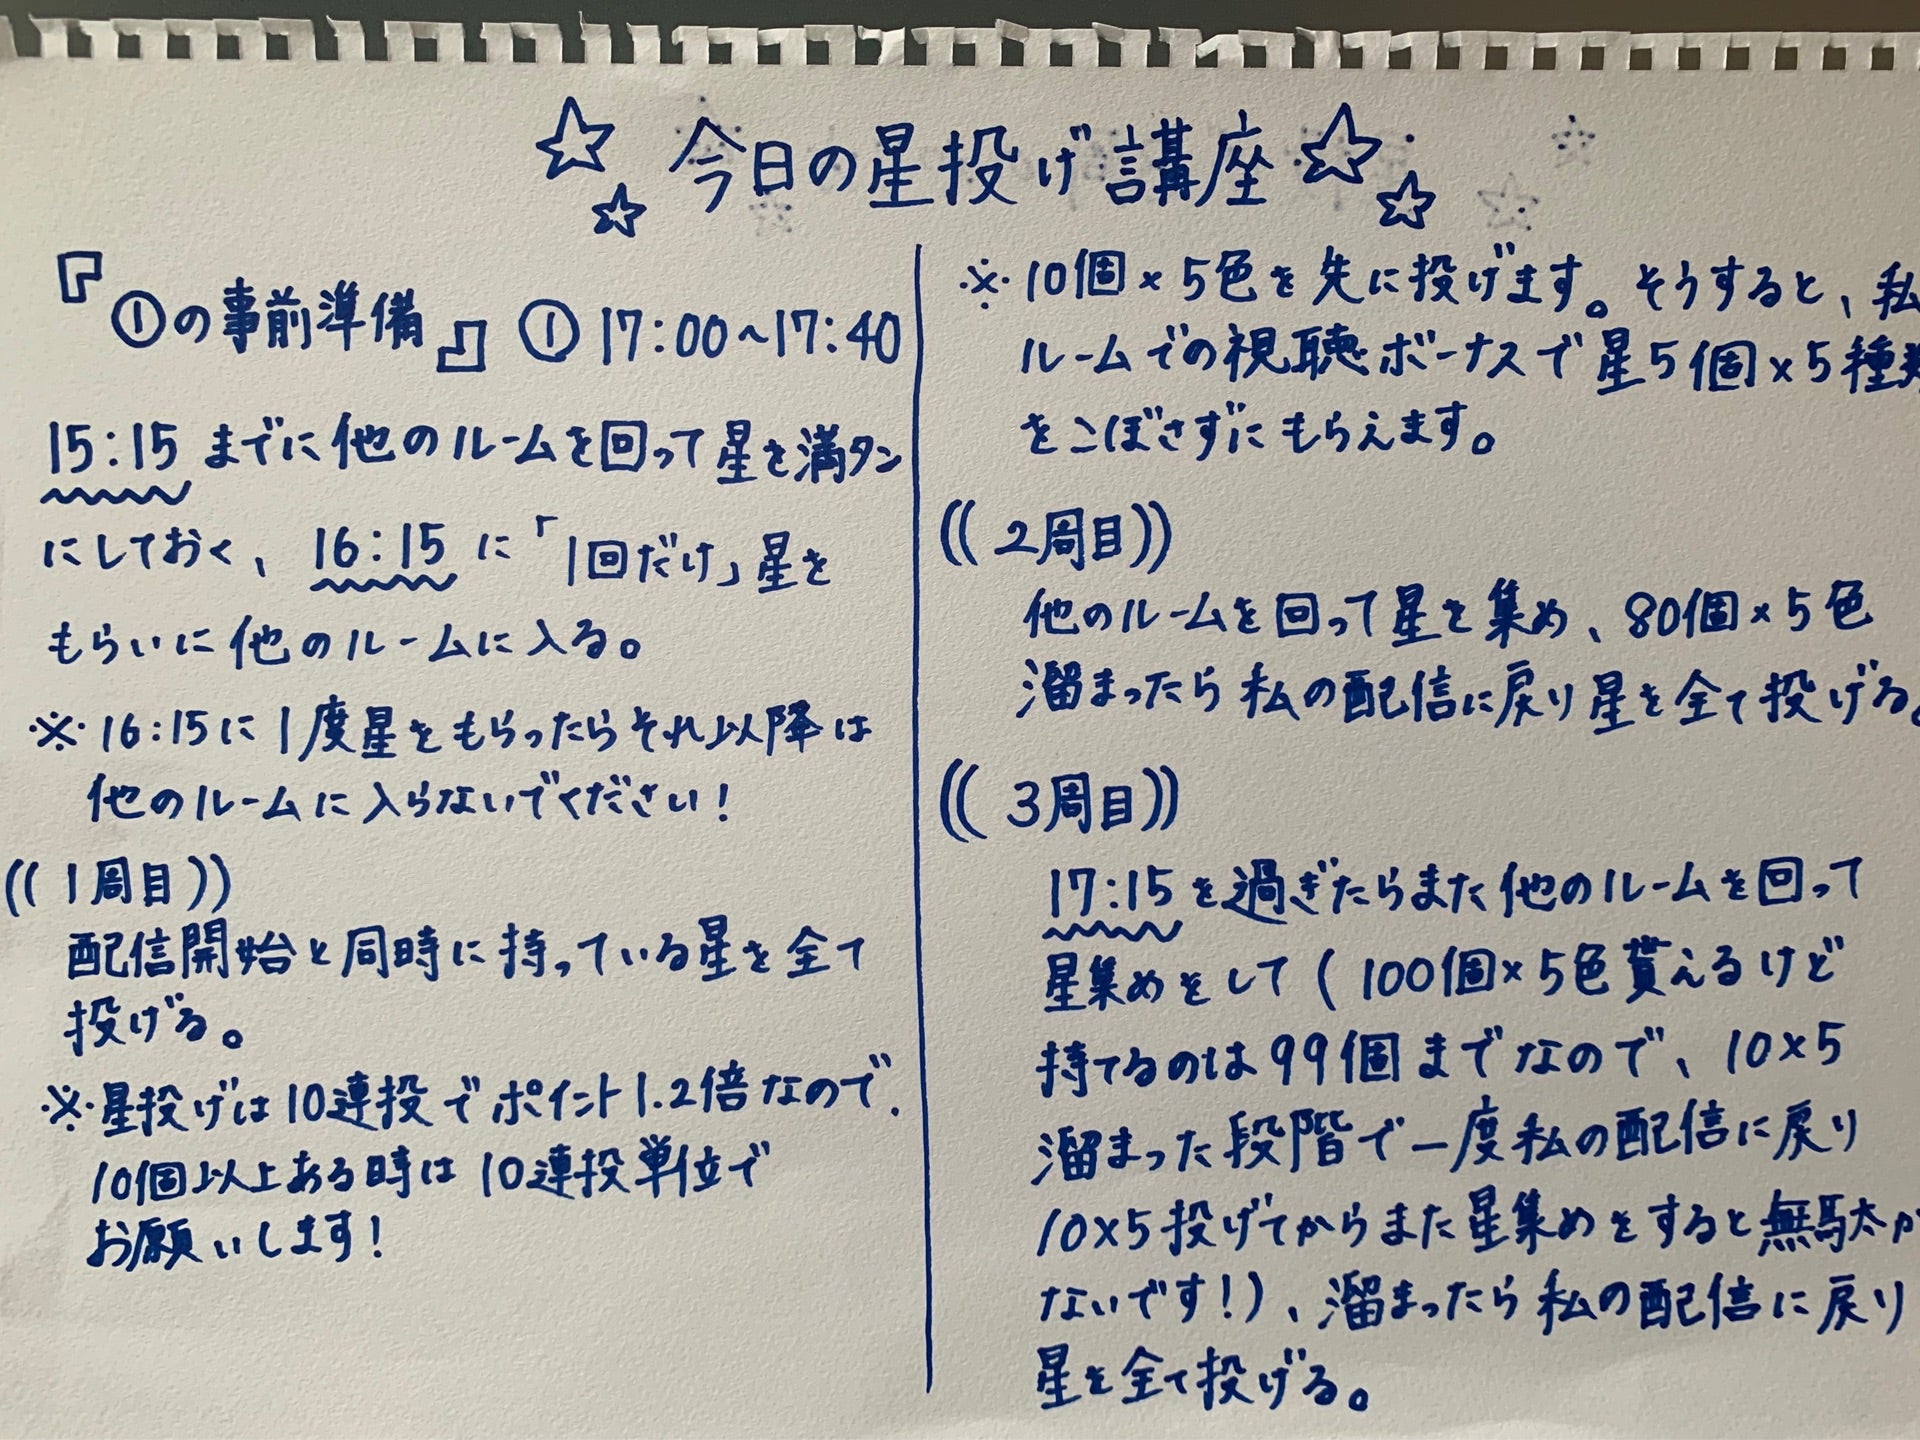 今日の星投げ講座
『①の事前準備』 ① 17:00~17:40
15:15 までに他のルームを回って星を満タン
にしておく、16:15 に「1回だけ」星を
もらいに他のルームに入る。
※16:15に1度星をもらったらそれ以降は
他のルームに入らないでください!
((1周目))
配信開始と同時に持っている星を全て
投げる。
※星投げは10連投でポイント1.2倍なので、
10個以上ある時は10連投単位で
お願いします!
※10個×5色を先に投げます。そうすると、私
ルームでの視聴ボーナスで星5個×5種類
をこぼさずにもらえます。
((2周目))
他のルームを回って星を集め、80個×5色
溜まったら私の配信に戻り星を全て投げる。
((3周目))
17:15を過ぎたらまた他のルームを回って
星集めをして(100個×5色貰えるけど
持てるのは99個までなので、10×5
溜まった段階で一度私の配信に戻り
10×5投げてからまた星集めをすると無駄が
ないです!)、溜まったら私の配信に戻り
星を全て投げる。